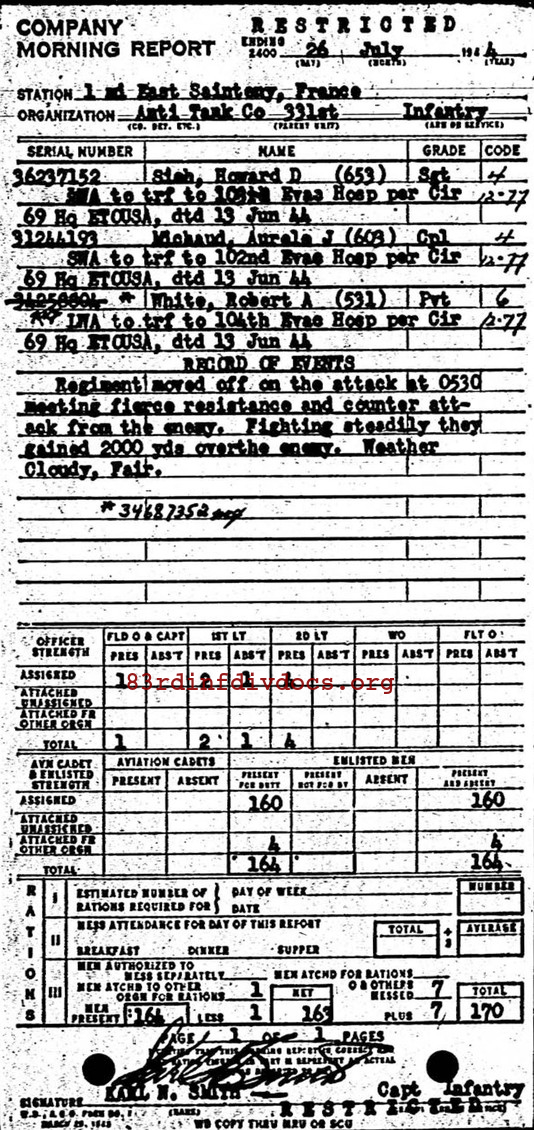 COMPANY
MORNING REPORT
RESTRICTED
ENDING 2400 26 July 1944
(DAY) (MONTH) (YEAR)
STATION 1 mi East Sainteny, France
ORGANIZATION Anti Tank Co 331st Infantry
(CO. DET. ETC.) (PARENT UNIT) (ARM OR SERVICE)
SERIAL NUMBER NAME GRADE CODE
36237152 Howard D (653) Sgt 4
SWA to trf to Evac Hosp per Cir 12-77
69 Hq ETOUSA, dtd 13 Jun 44
31244193 Michaud, Aurele J (603) Cpl 4
SWA to trf to 102nd Evac Hosp per Cir 12-77
69 Hq ETOUSA, dtd 13 Jun 44
34258804 * White, Robert A (531) Pvt 6
LWA to trf to 104th Evac Hosp per Cir 12-77
69 Hq ETOUSA, dtd 13 Jun 44
RECORD OF EVENTS
Regiment moved off on the attack at 0530
meeting fierce resistance and counter att-
ack from the enemy. Fighting steadily they
gained 2000 yds overthe enemy. Weather
Cloudy, Fair.
* 34687352
OFFICER STRENGTH FLD O & CAPT 1ST LT 2D LT WO FLT O
PRES ABS'T PRES ABS'T PRES ABS'T PRES ABS'T PRES ABS'T
ASSIGNED 1 2 1 4
83rdinfdivdocs.org
ATTACHED UNASSIGNED
ATTACHED FR OTHER ORGN
TOTAL 1 2 1 4
AVN CADET & ENLISTED STRENGTH AVIATION CADETS ENLISTED MEN
PRESENT ABSENT PRESENT FOR DUTY PRESENT NOT FOR DY ABSENT PRESENT AND ABSENT
ASSIGNED 160 160
ATTACHED UNASSIGNED
ATTACHED FR OTHER ORGN 4 4
TOTAL 164 164
RATIONS
I ESTIMATED NUMBER OF RATIONS REQUIRED FOR DAY OF WEEK NUMBER
DATE
II MESS ATTENDANCE FOR DAY OF THIS REPORT TOTAL ÷ 3 AVERAGE
BREAKFAST DINNER SUPPER
III MEN AUTHORIZED TO MESS SEPARATELY MEN ATCHD FOR RATIONS
MEN ATCHD TO OTHER ORGN FOR RATIONS 1 NET O & OTHERS MESSED 7 TOTAL
MEN PRESENT 164 LESS 1 163 PLUS 7 170
PAGE 1 OF 1 PAGES
KARL N. SMITH Capt Infantry
SIGNATURE
(NAME)
W.D., A.G.O. FORM NO. 1
MARCH 29, 1943
RESTRICTED
WD COPY THRU MRU OR SCU